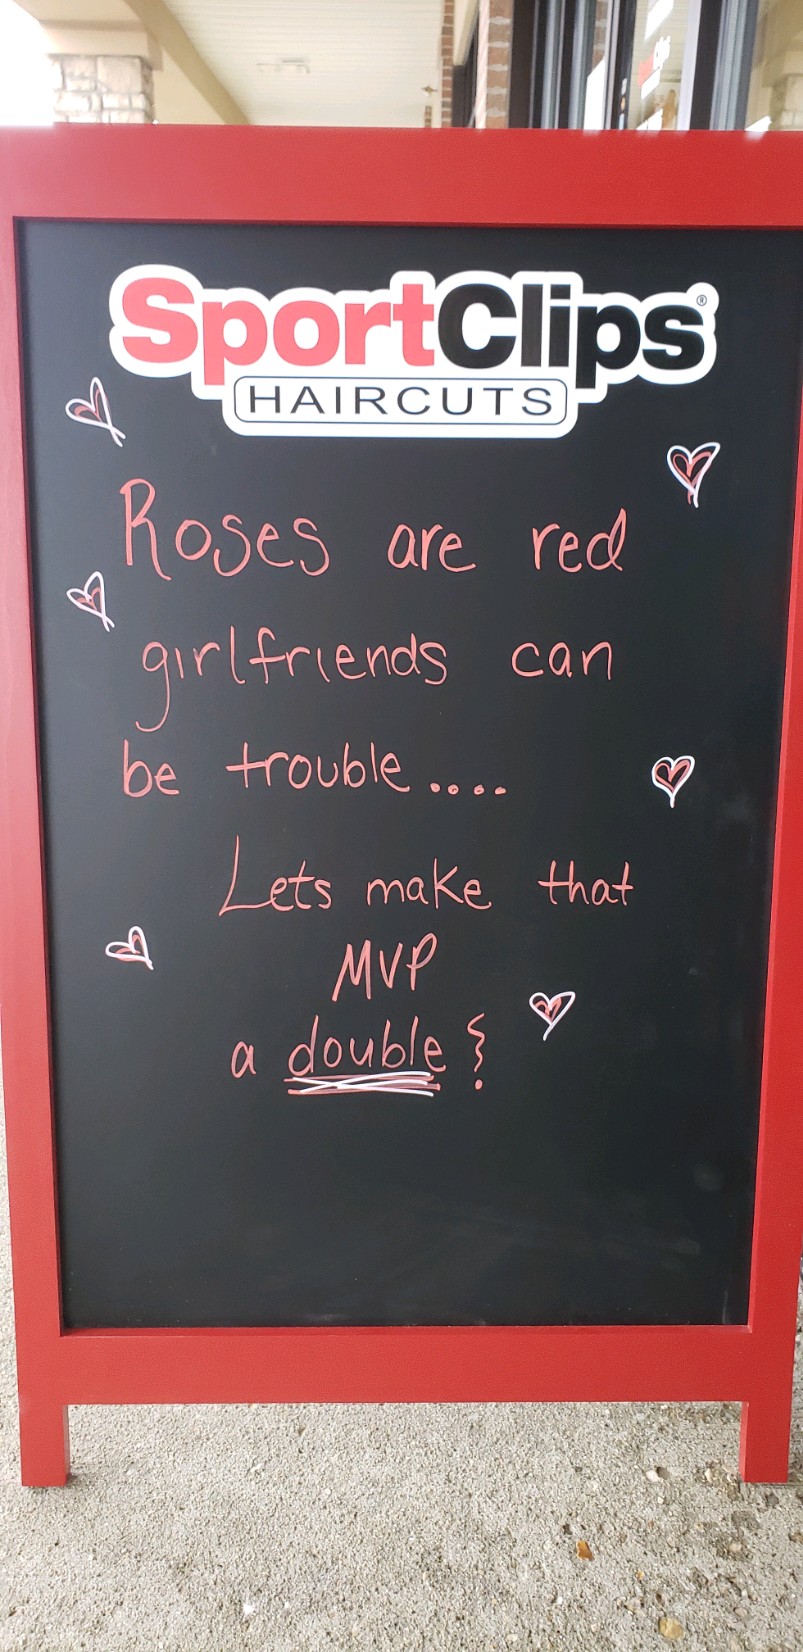 SportClips®
HAIRCUTS
Roses are red
girlfriends can
be trouble....
Lets make that
MVP
a double!